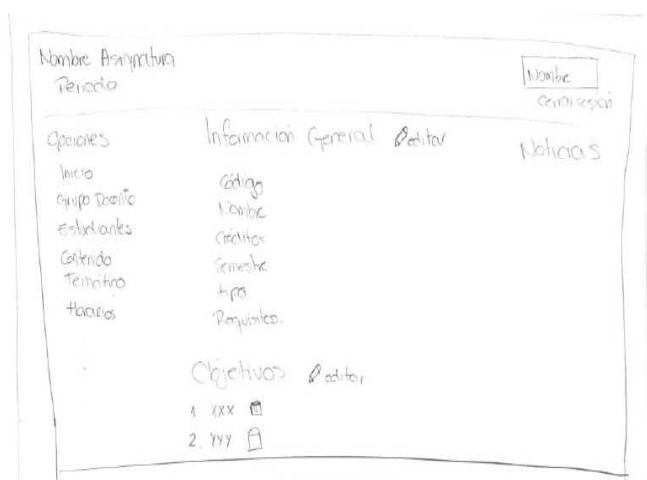 Nombre Asignatura
Periodo
Nombre
Cerrar sesión
Opciones
Inicio
Grupo Docente
Estudiantes
Contenido
Temático
Horarios
Información General editar
Código
Nombre
Créditos
Semestre
tipo
Requisitos.
Objetivos editar
1 XXX
2. YYY
Noticias